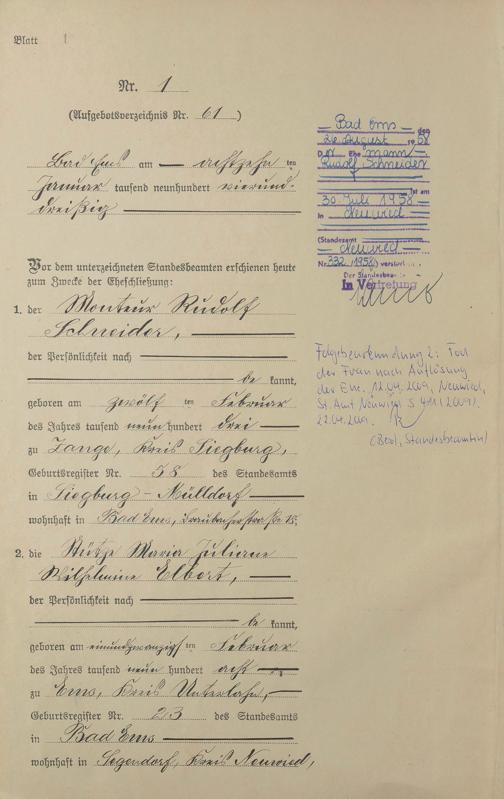 Blatt 1
Nr. 1
(Aufgebotsverzeichnis Nr. 61)
Bad Ems am achtzehn ten
Januar tausend neunhundert vierund-
dreißig
Vor dem unterzeichneten Standesbeamten erschienen heute
zum Zwecke der Eheschließung:
1. der Monteur Rudolf
Schneider,
der Persönlichkeit nach
be kannt,
geboren am zwölf ten Februar
des Jahres tausend neun hundert drei
zu Zange, Kreis Siegburg,
Geburtsregister Nr. 58 des Standesamts
in Siegburg-Mülldorf
wohnhaft in Bad Ems, Braubacherstraße 15,
2. die Stütze Maria Juliane
Wilhelmine Elbert,
der Persönlichkeit nach
be kannt,
geboren am einundzwanzigs ten Februar
des Jahres tausend neun hundert acht
zu Ems, Kreis Unterlahn,
Geburtsregister Nr. 23 des Standesamts
in Bad Ems
wohnhaft in Segendorf, Kreis Neuwied,
Bad Ems den
26. August 1958
Der Ehemann
Rudolf Schneider
ist am
30. Juli 1958
in Neuwied
(Standesamt
Neuwied
Nr. 332/1958) verstorben
Der Standesbeamte
In Vertretung
Folgebeurkundung 2: Tod
der Frau nach Auflösung
der Ehe, 12.04.2009, Neuwied,
St.Amt Neuwied S 411/2009).
22.04.2009.
Standesbeamtin)